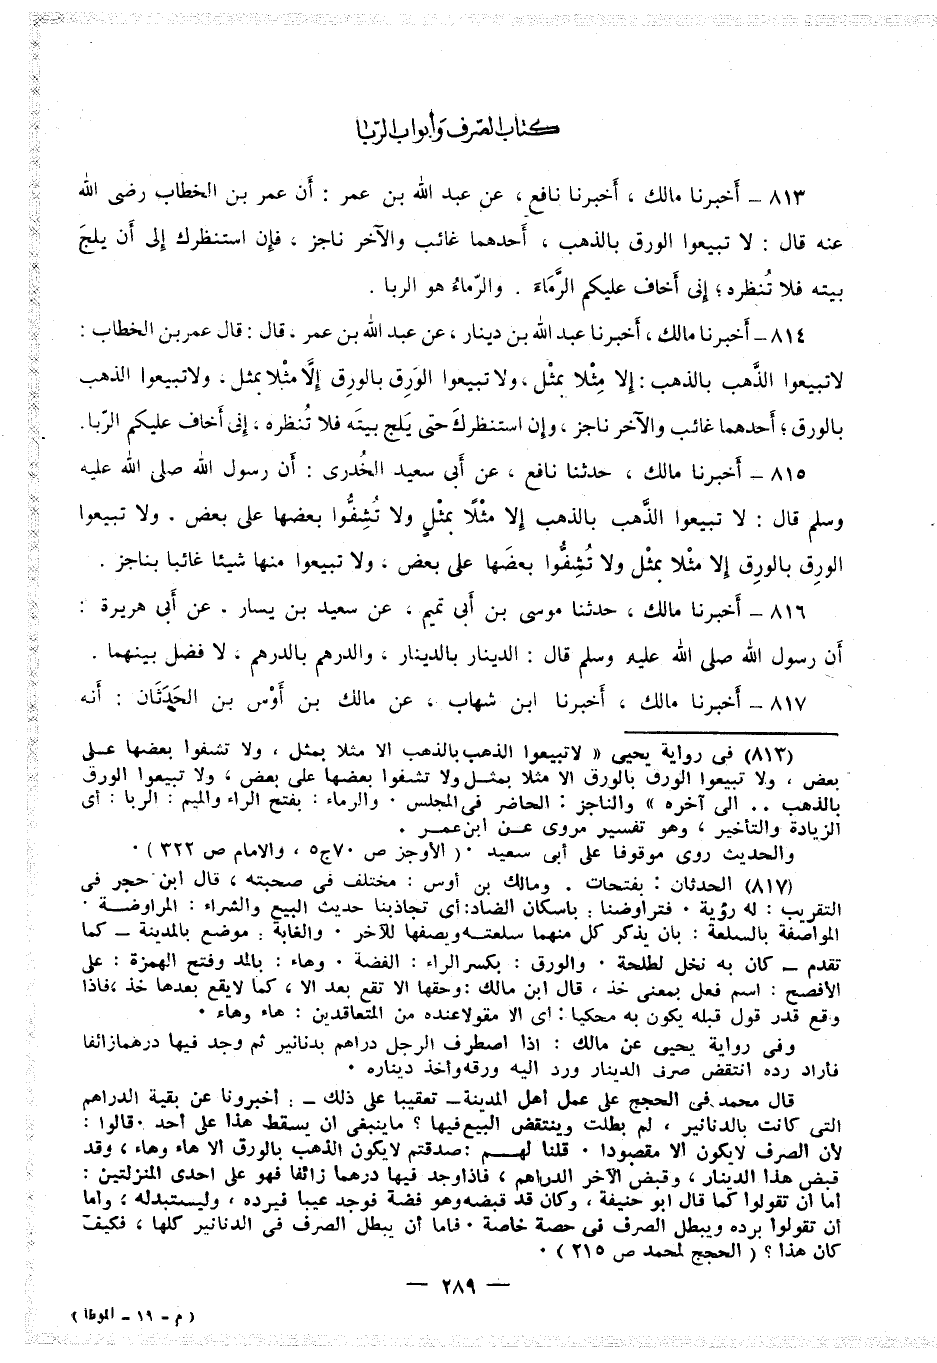 كتاب الصرف وأبواب الربا
٨١٣ – أخبرنا مالك ، أخبرنا نافع ، عن عبد الله بن عمر : أن عمر بن الخطاب رضى الله
عنه قال : لا تبيعوا الورق بالذهب ، أحدهما غائب والآخر ناجز ، فإن استنظرك إلى أن يلجَ
بيته فلا تُنظره ؛ إنى أخاف عليكم الرَّمَاءَ . والرّماءُ هو الربا .
٨١٤ – أخبرنا مالك ، أخبرنا عبد الله بن دينار ، عن عبد الله بن عمر ، قال : قال عمر بن الخطاب :
لاتبيعوا الذَّهب بالذهب : إلا مِثْلا بمثْل ، ولا تبيعوا الوَرِق بالورِق إلَّا مثْلا بمثل ، ولاتبيعوا الذهب
بالورق ؛ أحدهما غائب والآخر ناجز ، وإن استنظركَ حتى يَلج بيتَه فلا تُنظره ، إنى أخاف عليكم الرّبا.
٨١٥ – أخبرنا مالك ، حدثنا نافع ، عن أبى سعيد الخُدرى : أن رسول الله صلى الله عليه
وسلم قال : لا تبيعوا الذَّهب بالذهب إلا مثْلًا بمثْلٍ ولا تُشِفُّوا بعضها على بعض . ولا تبيعوا
الورِق بالورِق إلا مثْلا بمثْل ولا تُشِفُّوا بعضَها على بعض ، ولا تبيعوا منها شيئا غائبا بناجز .
٨١٦ – أخبرنا مالك ، حدثنا موسى بن أبى تميم ، عن سعيد بن يسار . عن أبى هريرة :
أن رسول الله صلى الله عليه وسلم قال : الدينار بالدينار ، والدرهم بالدرهم ، لا فضل بينهما .
٨١٧ – أخبرنا مالك ، أخبرنا ابن شهاب ، عن مالك بن أوْس بن الحَدَثَان : أنه
(٨١٣) فى رواية يحيى « لاتبيعوا الذهب بالذهب الا مثلا بمثل ، ولا تشفوا بعضها عـلى
بعض ، ولا تبيعوا الورق بالورق الا مثلا بمثـل ولا تشفوا بعضها على بعض ، ولا تبيعوا الورق
بالذهب .. الى آخره » والناجز : الحاضر فى المجلس ٠ والرماء : بفتح الراء والميم : الربا : أى
الزيادة والتأخير ، وهو تفسير مروى عـن ابن عمـر .
والحديث روى موقوفا على أبى سعيد ٠ ( الأوجز ص ٧٠ج٥ ، والامام ص ٣٢٢ ) ٠
(٨١٧) الحدثان : بفتحات . ومالك بن أوس : مختلف فى صحبته ، قال ابن حجر فى
التقريب : له رؤية ٠ فتراوضنا : باسكان الضاد: أى تجاذبنا حديث البيع والشراء : المراوضـة ٠
المواصفة بالسلعة : بان يذكر كل منهما سلعتـه ويصفها للآخر ٠ والغابة : موضع بالمدينة – كما
تقدم – كان به نخل لطلحة ٠ والورق : بكسر الراء : الفضة ٠ وهاء : بالمد وفتح الهمزة : على
الأفصح : اسم فعل بمعنى خذ ، قال ابن مالك : وحقها الا تقع بعد الا ، كما لايقع بعدها خذ ،فاذا
وقع قدر قول قبله يكون به محكيا : أى الا مقولا عنده من المتعاقدين : هاء وهاء ٠
وفى رواية يحيى عن مالك : اذا اصطرف الرجل دراهم بدنانير ثم وجد فيها درهما زائفا
فأراد رده انتقض صرف الدينار ورد اليه ورقه وأخذ ديناره ٠
قال محمد فى الحجج على عمل أهل المدينة – تعقيبا على ذلك – : أخبرونا عن بقية الدراهم
التى كانت بالدنانير ، لم بطلت وينتقض البيع فيها ؟ ماينبغى ان يسقط هذا على أحد ٠ قالوا :
لأن الصرف لايكون الا مقصودا ٠ قلنا لهـم : صدقتم لايكون الذهب بالورق الا هاء وهاء ، وقد
قبض هذا الدينار ، وقبض الآخر الدراهم ، فاذا وجد فيها درهما زائفا فهو على احدى المنزلتين :
اما ان تقولوا كما قال ابو حنيفة ، وكان قد قبضه وهو فضة فوجد عيبا فيرده ، وليستبدله ، واما
ان تقولوا برده ويبطل الصرف فى حصة خاصة ٠ فاما أن يبطل الصرف فى الدنانير كلها ، فكيف
كان هذا ؟ ( الحجج لمحمد ص ٢١٥ ) ٠
— ٢٨٩ —
( م – ١٩ – الموطأ )